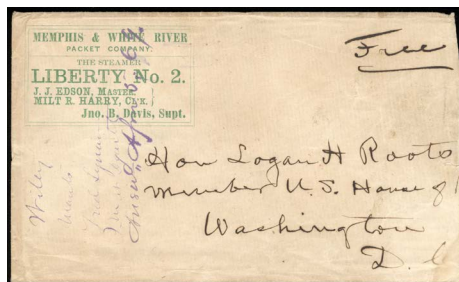 MEMPHIS & WHITE RIVER
PACKET COMPANY.
THE STEAMER
LIBERTY No. 2.
J. J. EDSON, MASTER.
MILT R. HARRY, CL'K.
Jno. B. Davis, Supt.
Free
Hon Logan H Roots
Member U.S. House of
Washington
D.
Wiley
wants